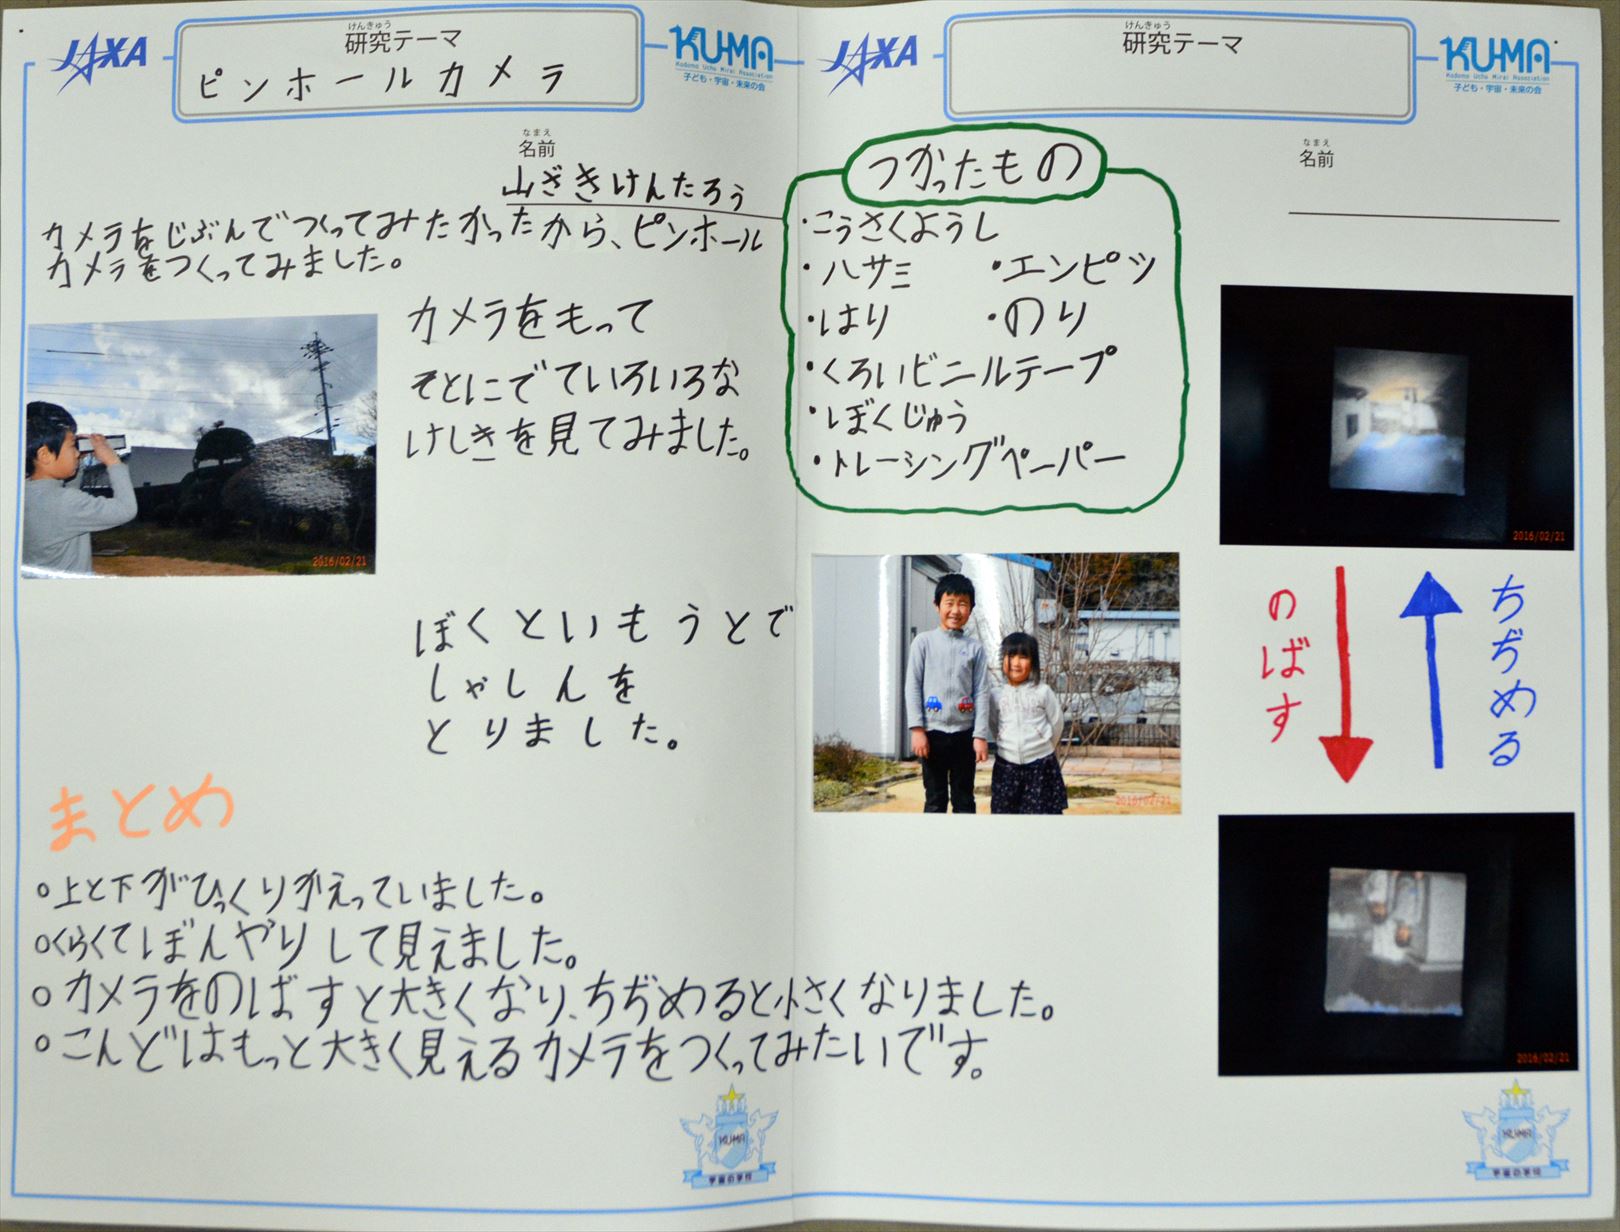 JAXA
けんきゅう
研究テーマ
ピンホールカメラ
KU-MA
Kodomo Uchu Mirai Association
子ども・宇宙・未来の会
なまえ
名前
山ざきけんたろう
カメラをじぶんでつくってみたかったから、ピンホール
カメラをつくってみました。
カメラをもって
そとにでていろいろな
けしきを見てみました。
2016/02/21
ぼくといもうとで
しゃしんを
とりました。
まとめ
○上と下がひっくりかえっていました。
○くらくてぼんやりして見えました。
○カメラをのばすと大きくなり、ちぢめると小さくなりました。
○こんどはもっと大きく見えるカメラをつくってみたいです。
KU-MA
宇宙の学校
JAXA
けんきゅう
研究テーマ
KU-MA
Kodomo Uchu Mirai Association
子ども・宇宙・未来の会
なまえ
名前
つかったもの
・こうさくようし
・ハサミ ・エンピツ
・はり ・のり
・くろいビニルテープ
・ぼくじゅう
・トレーシングペーパー
2016/02/21
2016/02/21
のばす
ちぢめる
2016/02/21
KU-MA
宇宙の学校